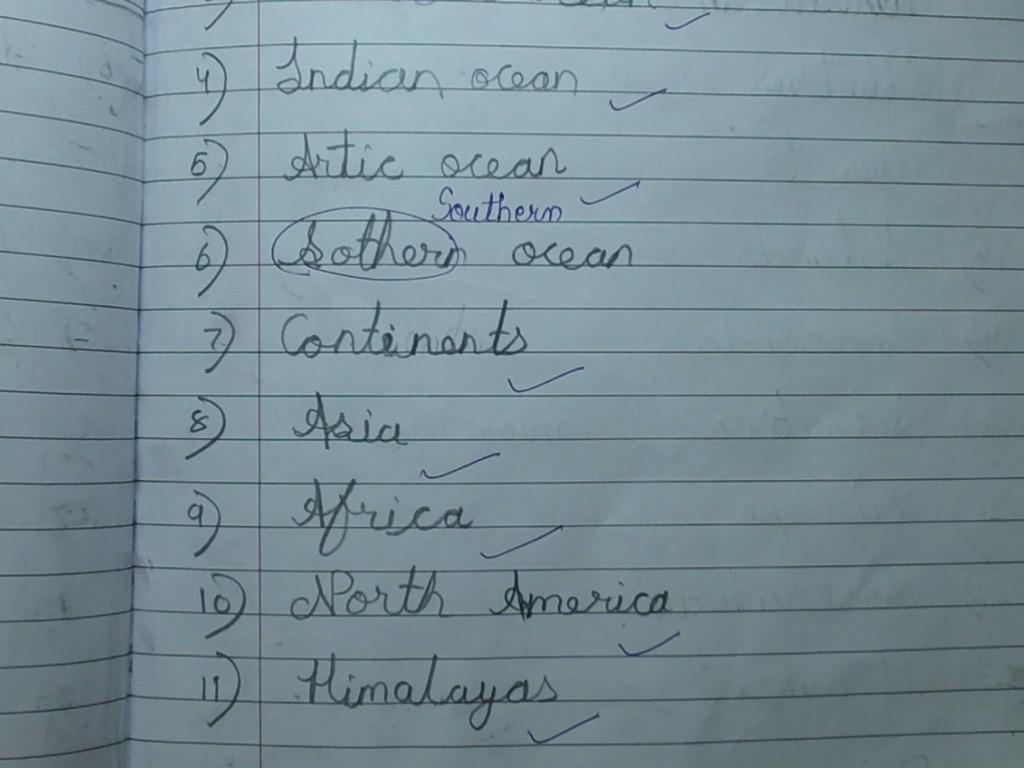 4) Indian ocean
5) Artic ocean
Southern
6) Sothern ocean
7) Continents
8) Asia
9) Africa
10) North America
11) Himalayas